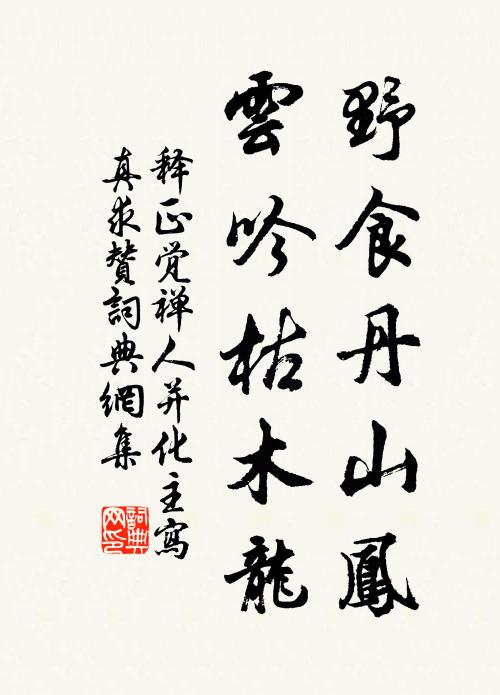 野食丹山鳳
雲吟枯木龍
释正觉禅人并化主寫
真求贊詞典網集
詞典网印